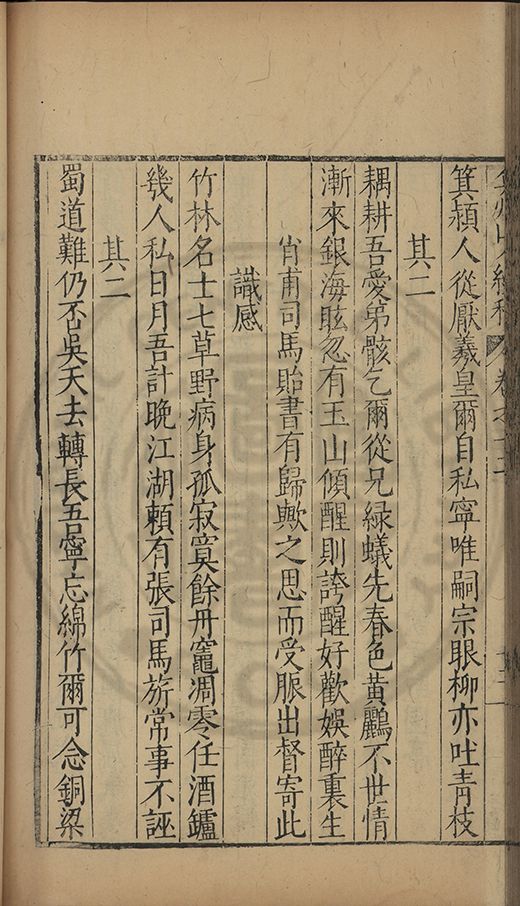 箕潁人從厭羲皇爾自私寧唯嗣宗眼柳亦吐青枝
其二
耦耕吾愛弟骸乞爾從兄緑蟻先春色黄鸝不世情
漸來銀海眩忽有玉山傾醒則誇醒好歡娛醉裏生
肖甫司馬貽書有歸歟之思而受脤出督寄此
識感
竹林名士七草野病身孤寂寞餘丹竈凋零任酒鑪
幾人私日月吾計晚江湖頼有張司馬旂常事不誣
其二
蜀道難仍否吳天去轉長吾寧忘綿竹爾可念銅梁